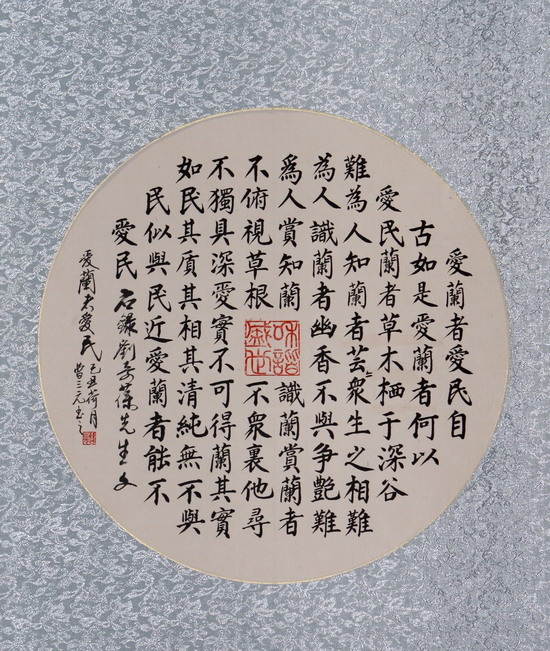 愛蘭者愛民自
古如是愛蘭者何以
愛民蘭者草木栖于深谷
難為人知蘭者芸〻衆生之相難
為人識蘭者幽香不與争艷難
爲人賞知蘭 識蘭賞蘭者
不俯視草根 不衆裏他尋
不獨具深愛實不可得蘭其實
如民其質其相其清純無不與
民似與民近愛蘭者能不
愛民 石錄劉奇葆先生文
愛蘭者愛民 己丑荷月
三元書之
和諧
盛世